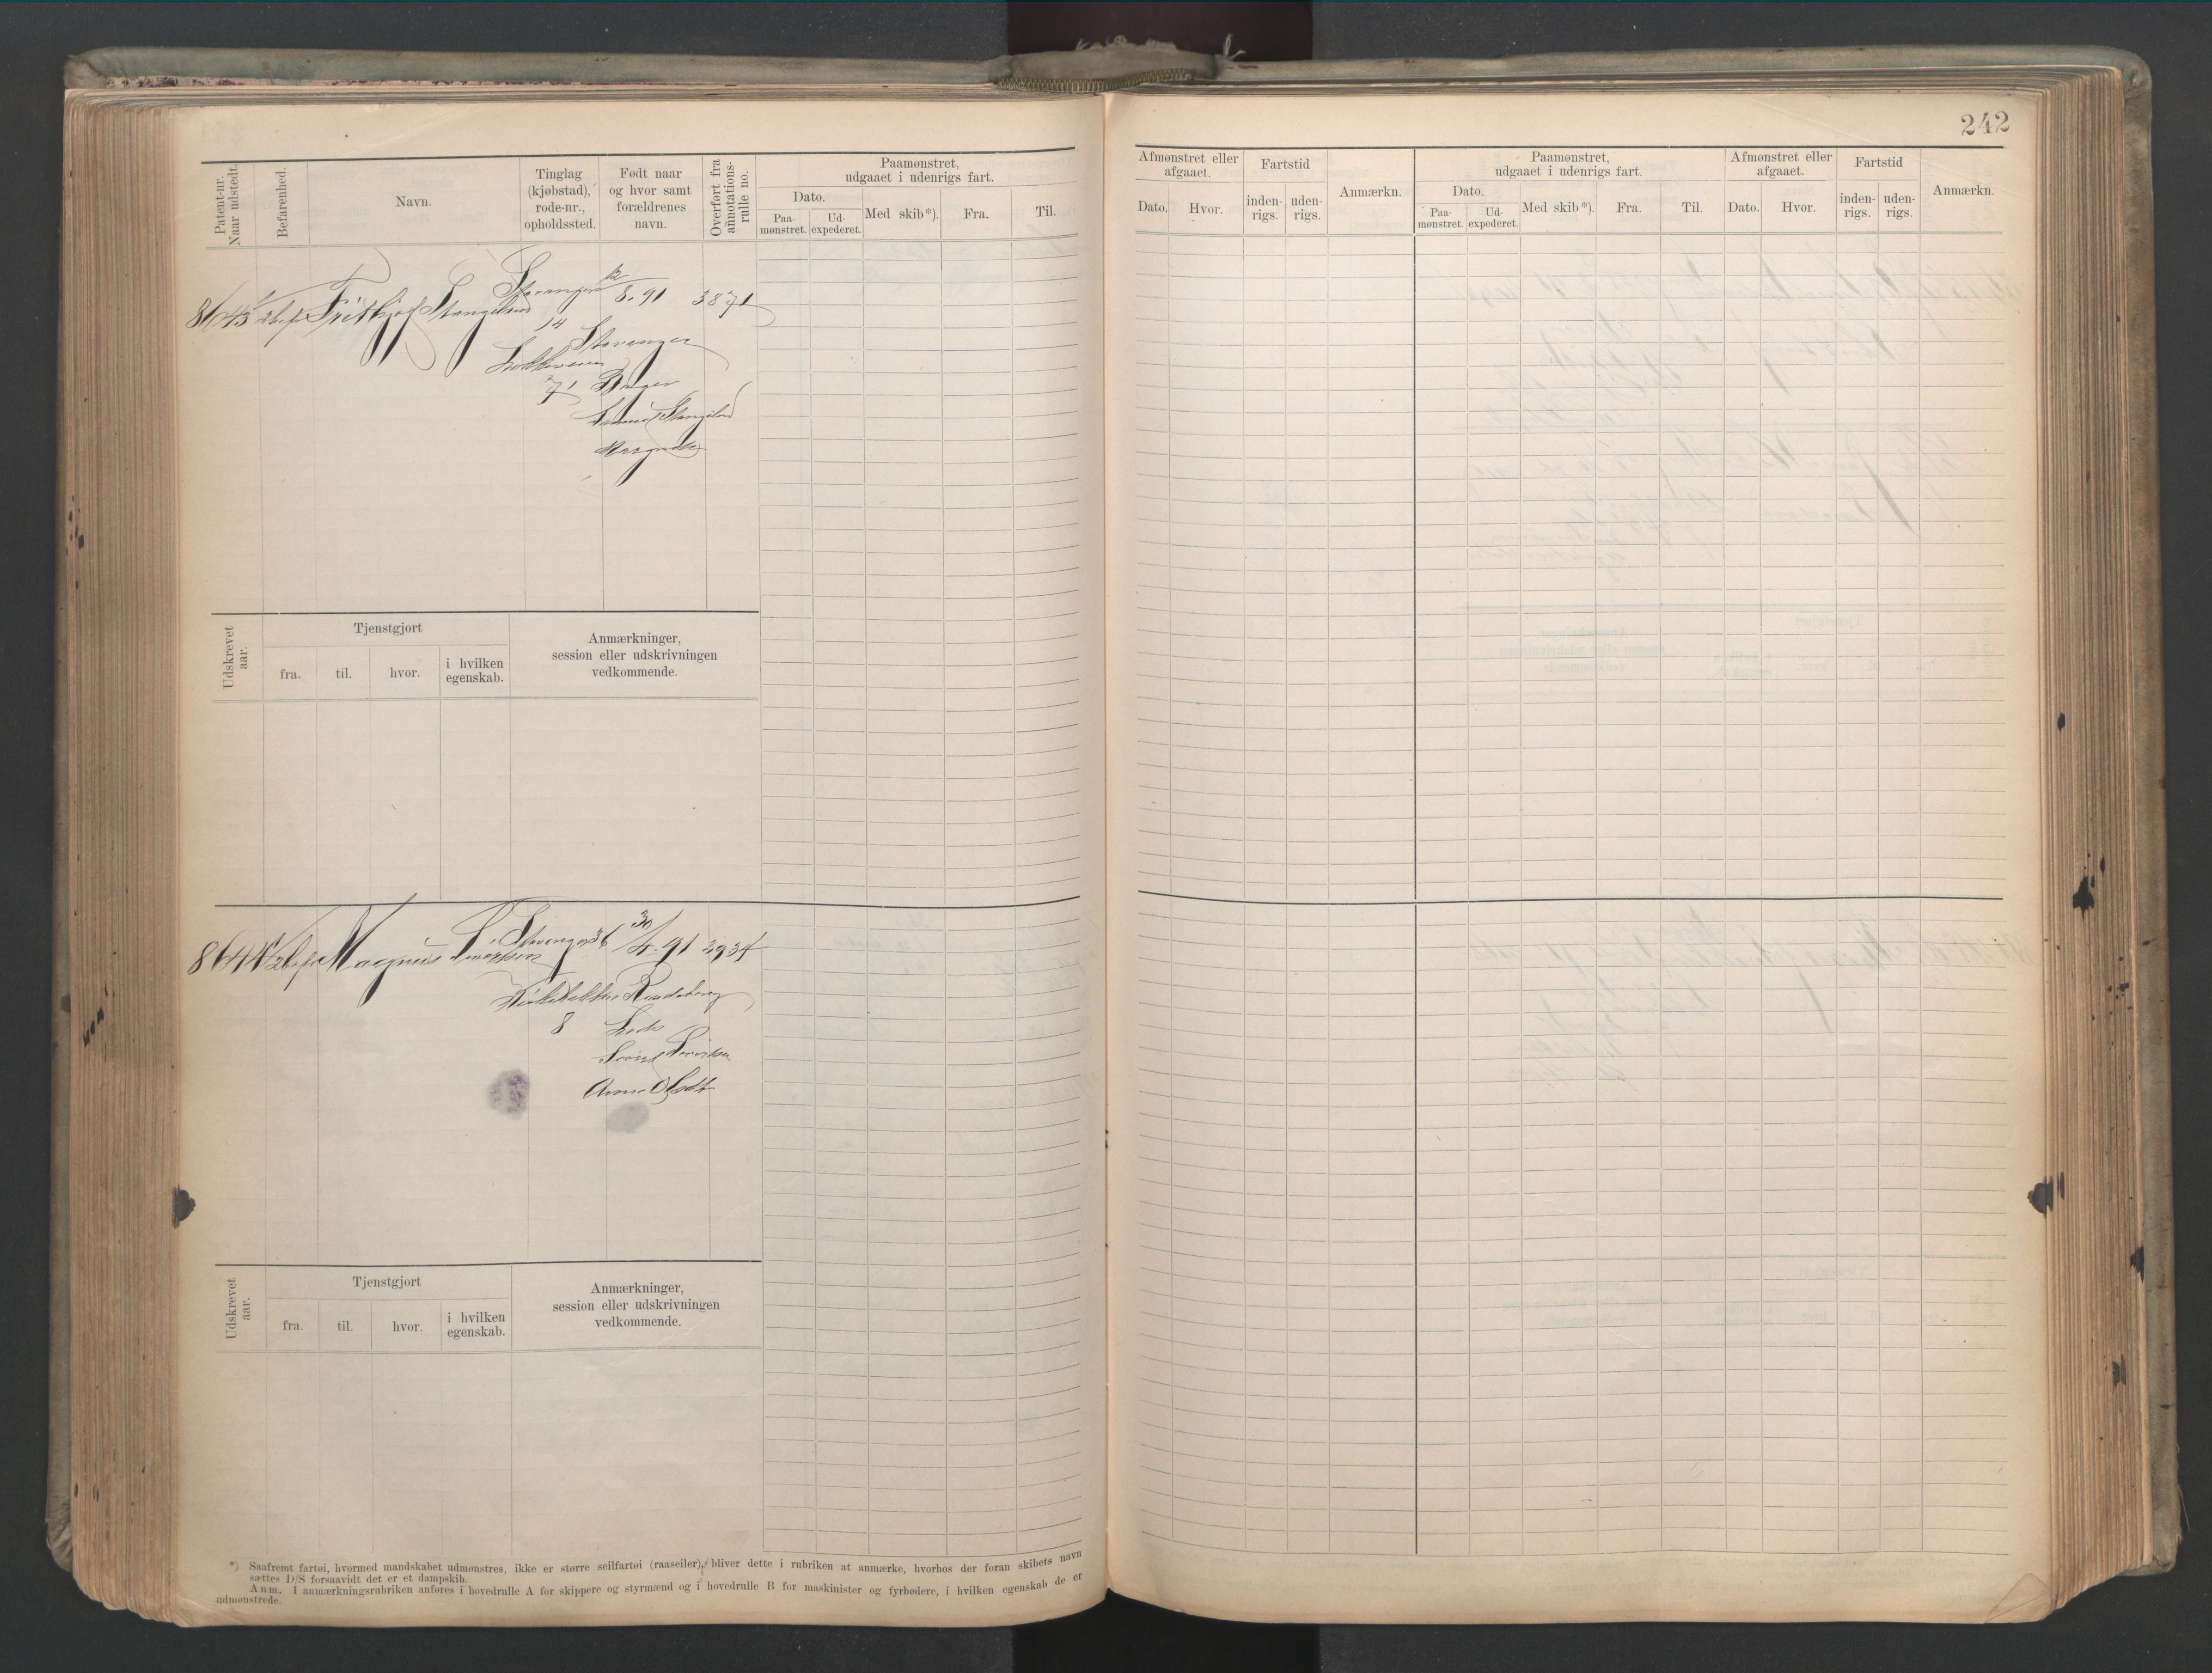 242
Patent-nr. Naar udstedt.
Befarenhed.
Navn.
Tinglag (kjøbstad), rode-nr., opholdssted.
Født naar og hvor samt forældrenes navn.
Overført fra annotations-rulle no.
Paamønstret, udgaaet i udenrigs fart.
Dato.
Paa-mønstret.
Ud-expederet.
Med skib*).
Fra.
Til.
Afmønstret eller afgaaet.
Dato.
Hvor.
Fartstid
inden-rigs.
uden-rigs.
Anmærkn.
Paamønstret, udgaaet i udenrigs fart.
Dato.
Paa-mønstret.
Ud-expederet.
Med skib*).
Fra.
Til.
Afmønstret eller afgaaet.
Dato.
Hvor.
Fartstid
inden-rigs.
uden-rigs.
Anmærkn.
8643 Frithjof Stangeland Stavanger 8.91 3871
14 Stavanger
71
Stangeland
Udskrevet aar.
Tjenstgjort
fra.
til.
hvor.
i hvilken egenskab.
Anmærkninger, session eller udskrivningen vedkommende.
8644 Magnus Stavanger 36 30/4.91 2934
8
Anna Olsdt
Udskrevet aar.
Tjenstgjort
fra.
til.
hvor.
i hvilken egenskab.
Anmærkninger, session eller udskrivningen vedkommende.
*) Saafremt fartøi, hvormed mandskabet udmønstres, ikke er større seilfartøi (raaseiler), bliver dette i rubriken at anmærke, hvorhos der foran skibets navn
sættes D/S forsaavidt det er et dampskib.
Anm. I anmærkningsrubriken anføres i hovedrulle A for skippere og styrmænd og i hovedrulle B for maskinister og fyrbødere, i hvilken egenskab de er
udmønstrede.